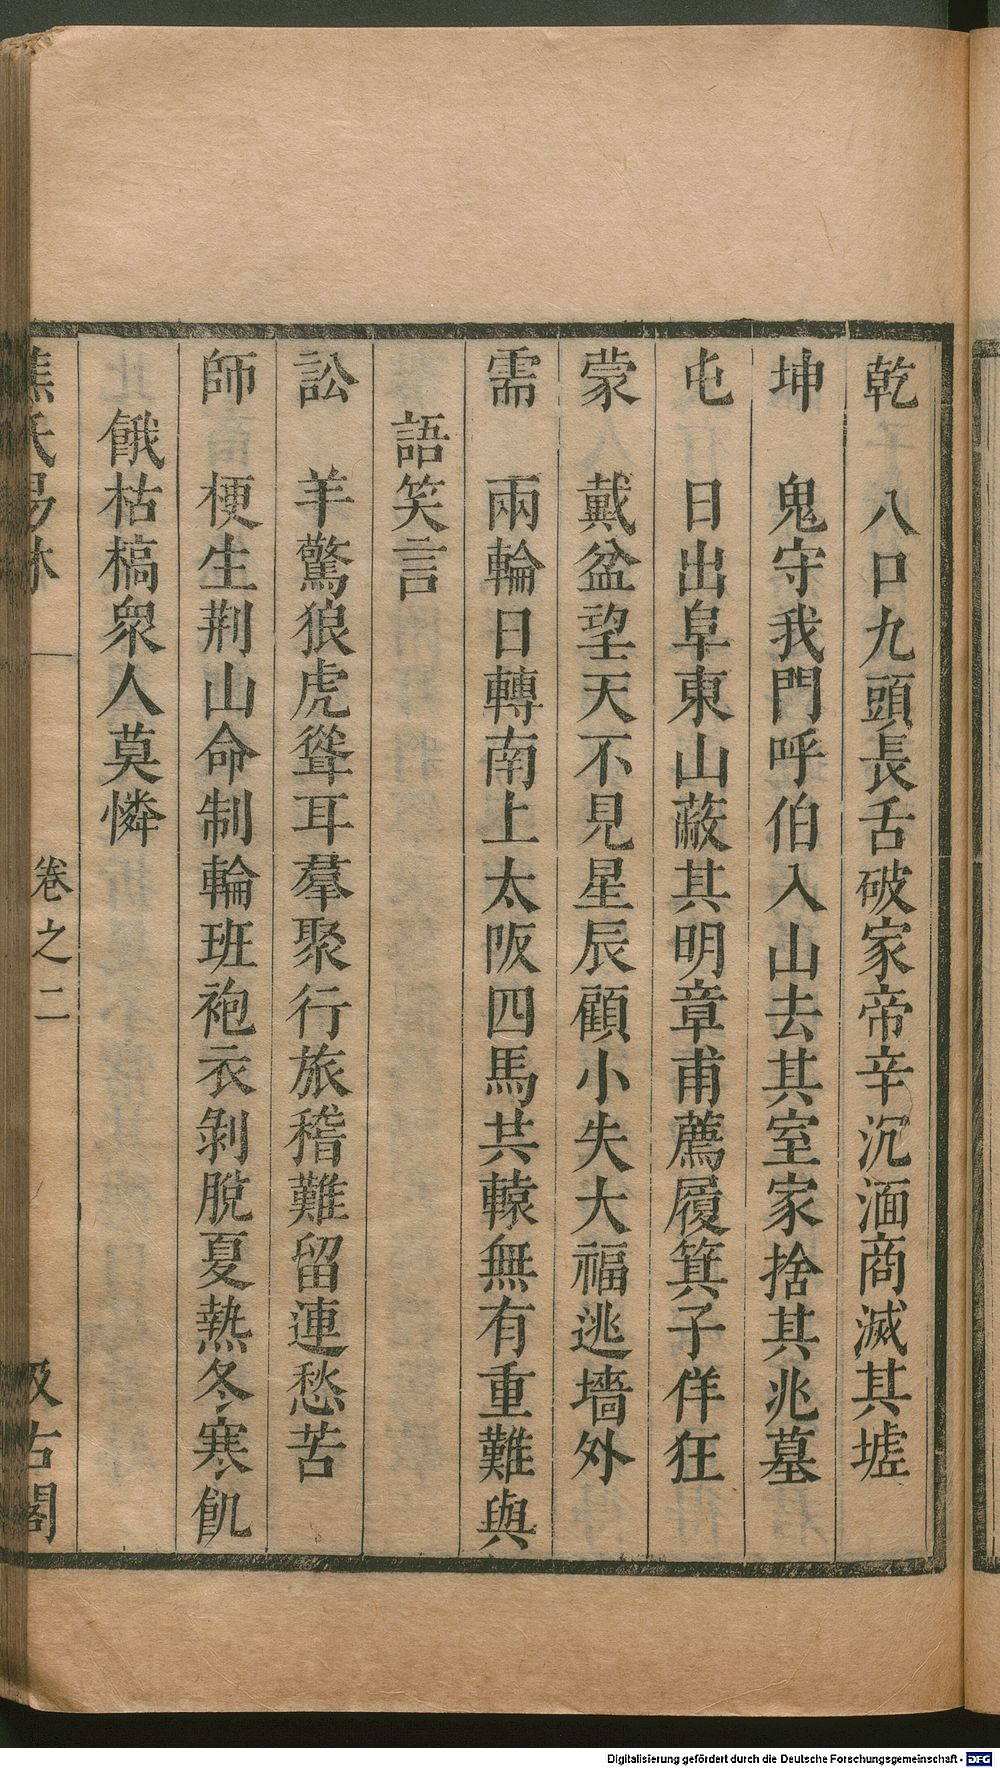 乾　八口九頭長舌破家帝辛沉湎商滅其墟
坤　鬼守我門呼伯入山去其室家捨其兆墓
屯　日出阜東山蔽其明章甫薦履箕子佯狂
蒙　戴盆望天不見星辰顧小失大福逃墻外
需　兩輪日轉南上太阪四馬共轅無有重難與
語笑言
訟　羊驚狼虎聳耳羣聚行旅稽難留連愁苦
師　梗生荆山命制輪班袍衣剝脫夏熱冬寒飢
餓枯槁衆人莫憐
焦氏易林　卷之二　汲古閣
Digitalisierung gefördert durch die Deutsche Forschungsgemeinschaft - DFG